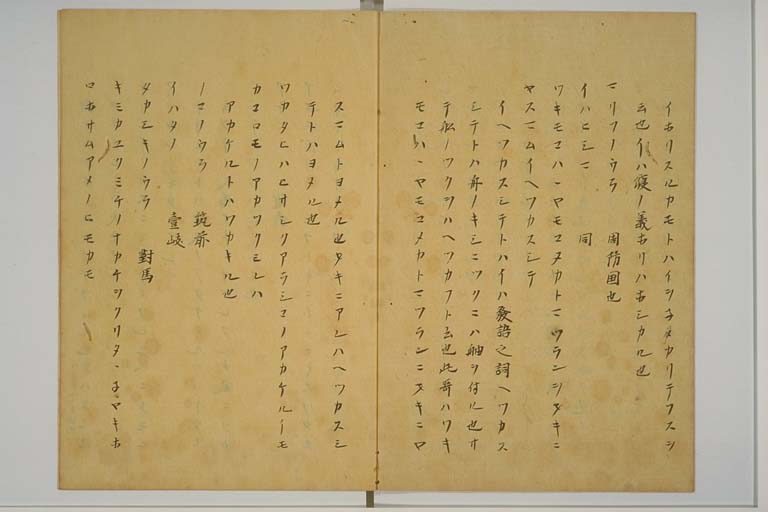 イホリスルカモトハイツ子ヲカリテフスシ
云也イハ寝ノ義ホリハホシカル也
ニリフノウラ　周防国也
イハヒシマ　同
ワキモコハハヤモコヌカトマツランヲヲキニ
ヤスマムイヘツカスシテ
イヘツカスシテトハイハ發語之詞ヘツカス
シテトハ舟ノキシニツクニハ舳ヲ付ル也サ
テ舩ノツクヲハヘツカフト云也此哥ハワキ
モコハハヤモコヌカトマツランニヲキニマ
スマムトヨメル也ヲキニアレハヘツカスシ
テトハヨメル也
ワカタヒハヒサシクアラシコノアカケルイモ
カコロモノアカツクミレハ
アカケルトハワカキル也
ノコノウラ　筑前
イハタノ　壹岐
タカシキノウラ　對馬
キミカユクミチノナカテヲクリタヽ子ヤキホ
ロホサムアメノヒモカモ